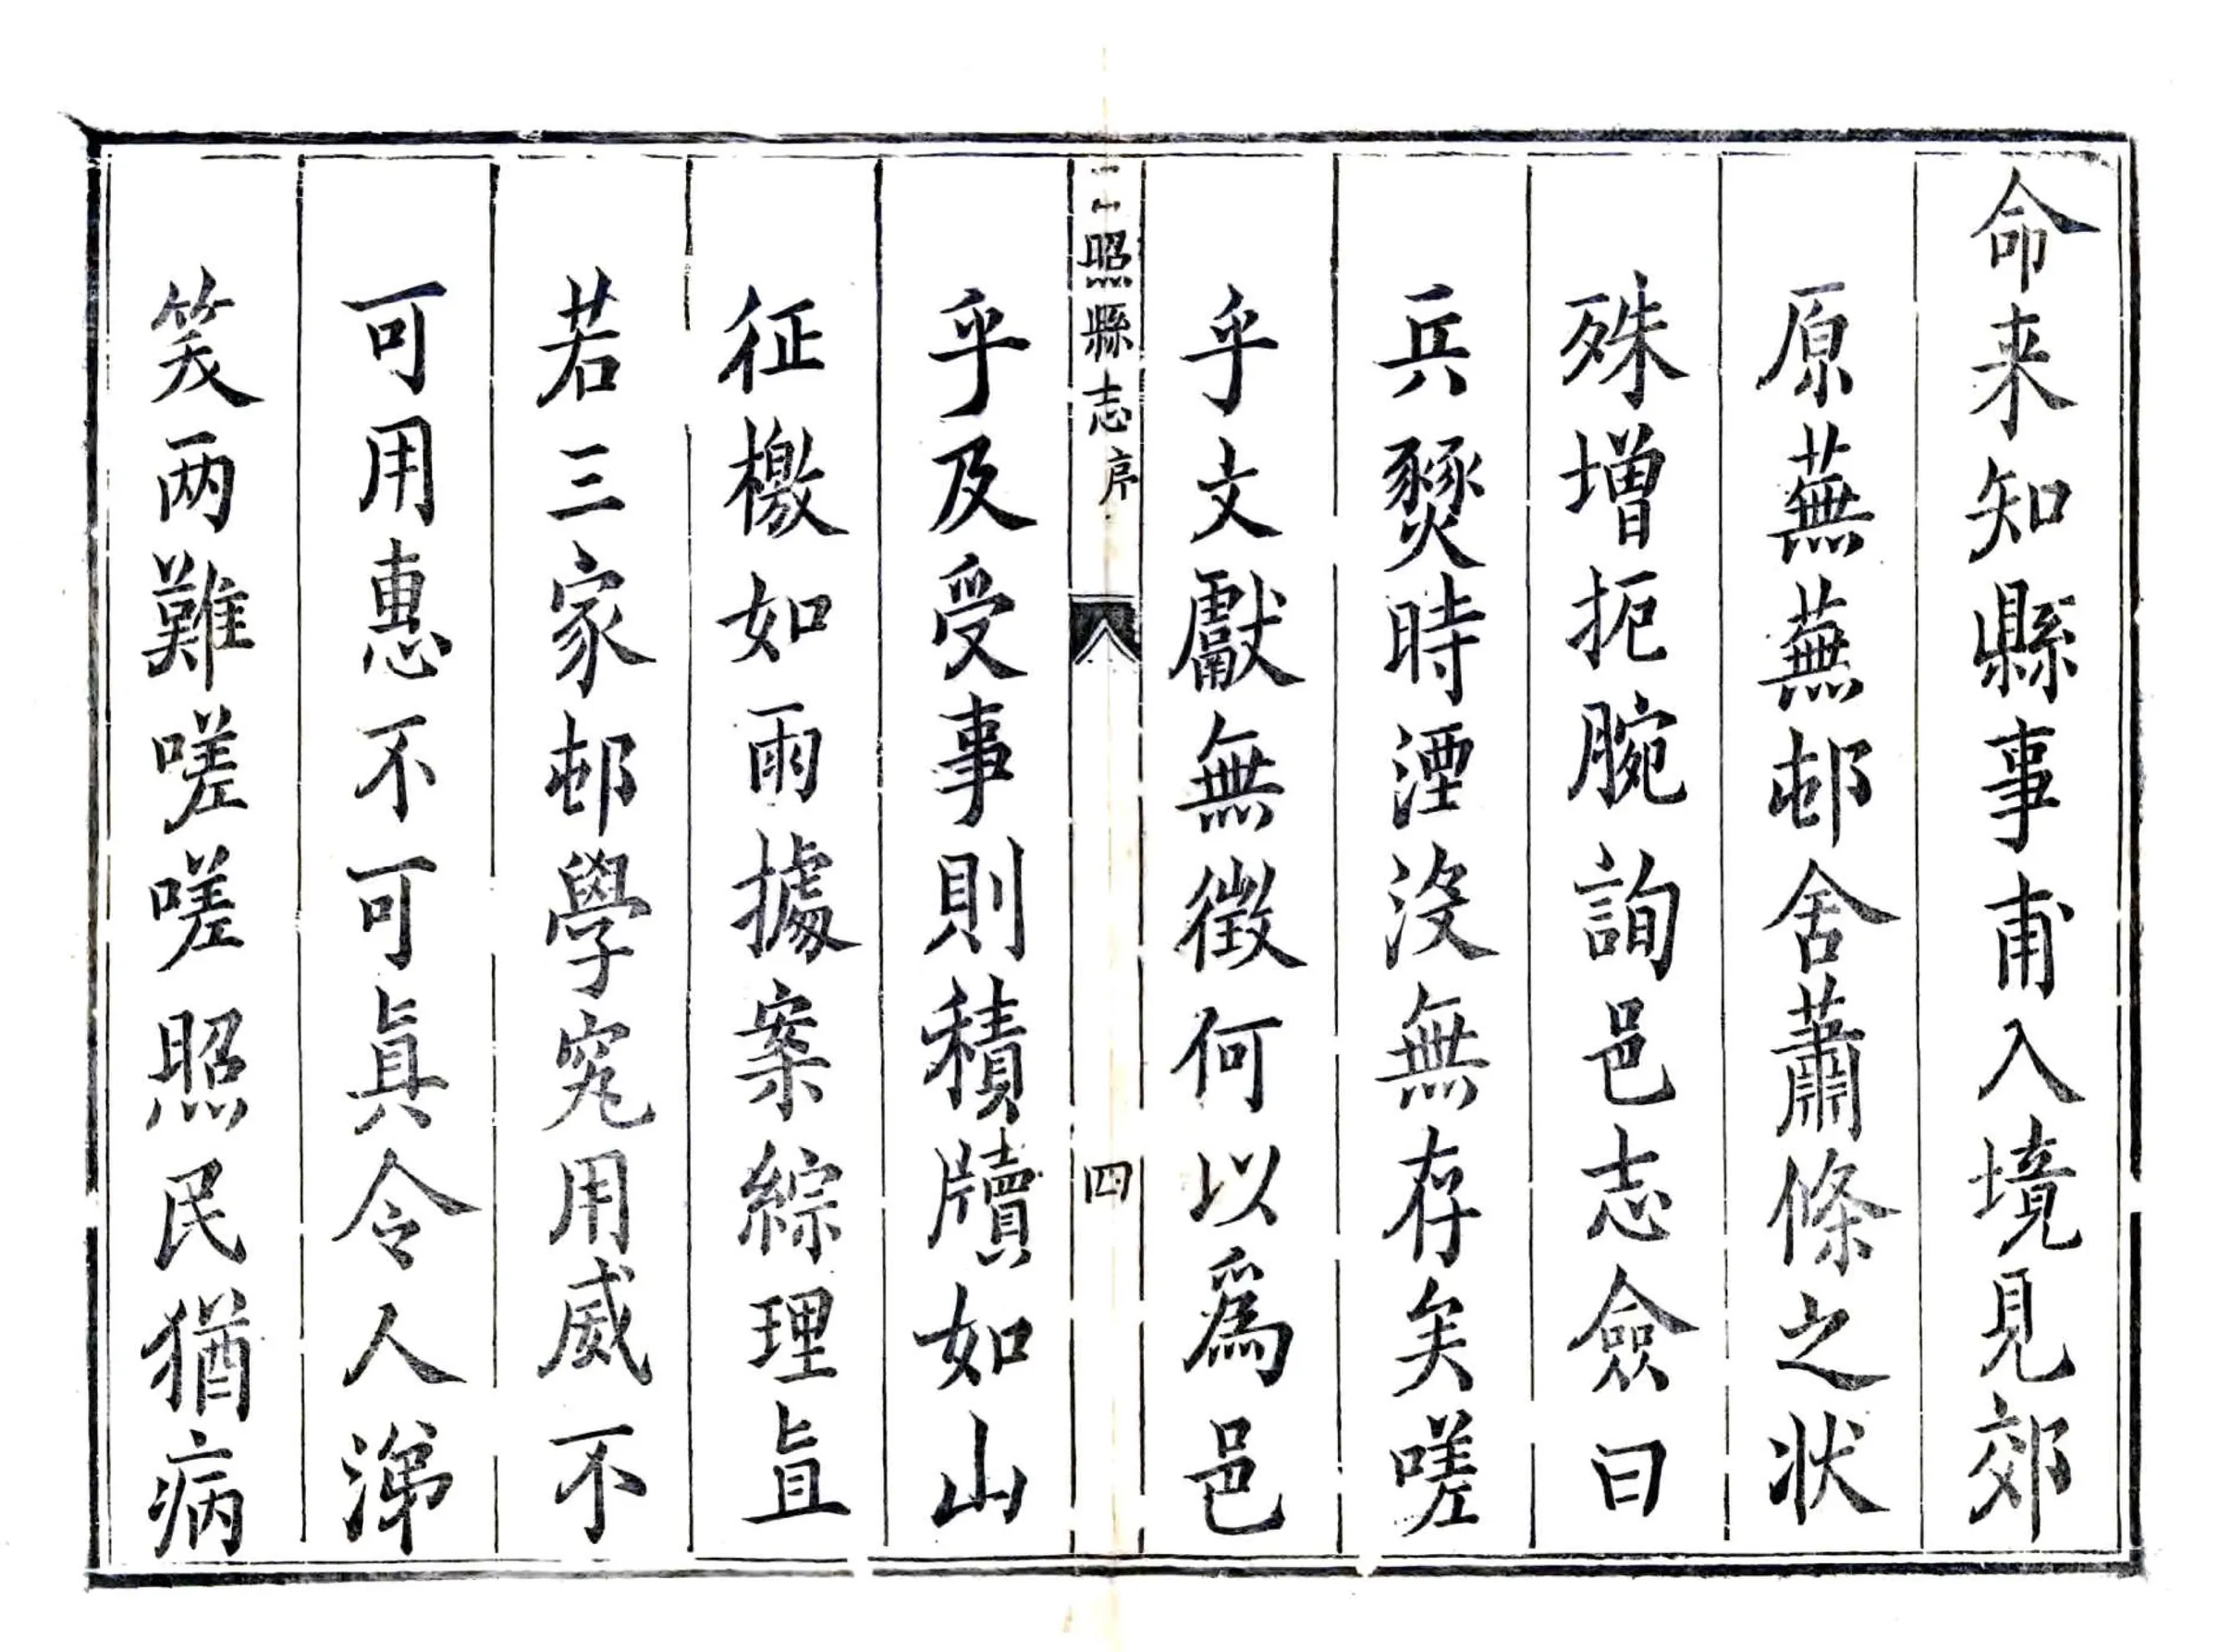 命来知縣事甫入境見郊
原蕪蕪邨舍蕭條之狀
殊增扼腕詢邑志僉曰
兵燹時湮沒無存矣嗟
乎文獻無徵何以爲邑
照縣志序
四
乎及受事則積牘如山
征檄如雨據案綜理眞
若三家邨學究用威不
可用惠不可眞令人涕
笑两難嗟嗟照民猶病